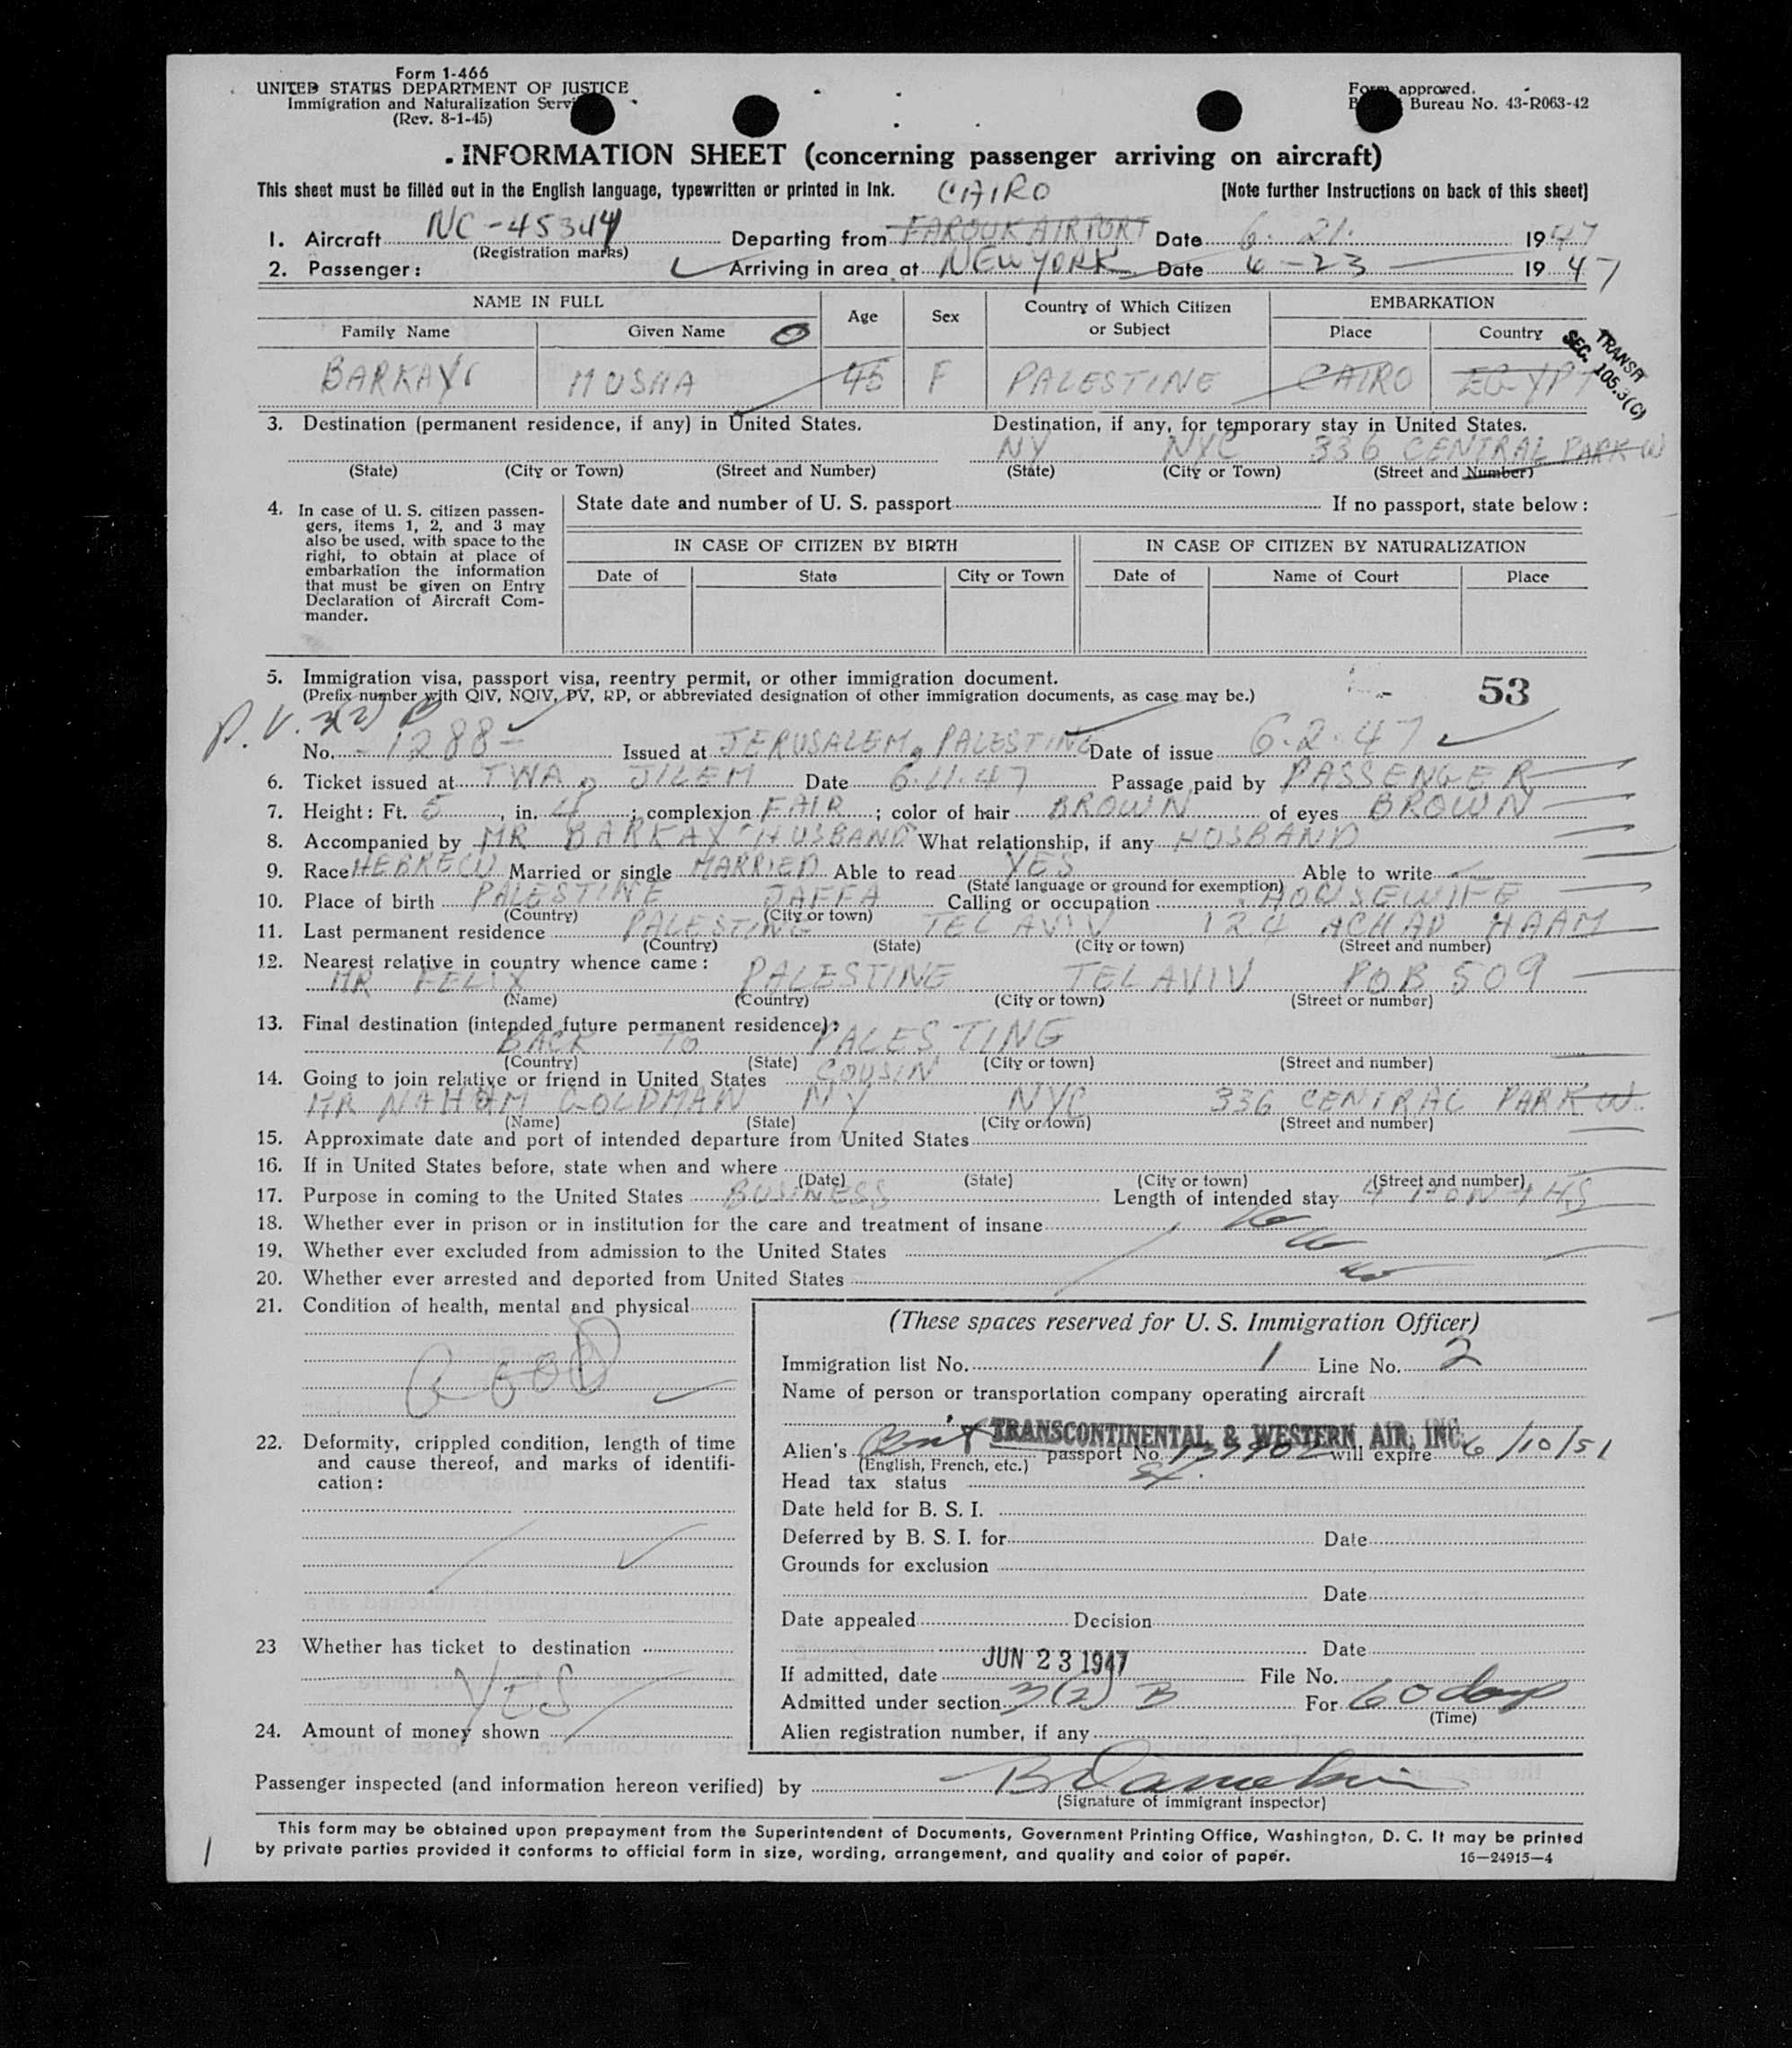 Form 1-466
UNITED STATES DEPARTMENT OF JUSTICE
Immigration and Naturalization Servi
(Rev. 8-1-45)
Form approved.
B Bureau No. 43-R063-42
INFORMATION SHEET (concerning passenger arriving on aircraft)
This sheet must be filled out in the English language, typewritten or printed in Ink. CAIRO [Note further Instructions on back of this sheet]
1. Aircraft NC-45344 Departing from FAROUK AIRPORT Date 6. 21. 1947
(Registration marks)
2. Passenger: Arriving in area at NEW YORK Date 6-23 1947
NAME IN FULL Age Sex Country of Which Citizen or Subject EMBARKATION
Family Name Given Name Place Country
BARKAY MUSHA 45 F PALESTINE CAIRO EGYPT
TRANSIT
SEC. 105.3(C)
3. Destination (permanent residence, if any) in United States. Destination, if any, for temporary stay in United States.
NY NYC 336 CENTRAL PARK W
(State) (City or Town) (Street and Number) (State) (City or Town) (Street and Number)
4. In case of U. S. citizen passengers, items 1, 2, and 3 may also be used, with space to the right, to obtain at place of embarkation the information that must be given on Entry Declaration of Aircraft Commander.
State date and number of U. S. passport If no passport, state below:
IN CASE OF CITIZEN BY BIRTH IN CASE OF CITIZEN BY NATURALIZATION
Date of State City or Town Date of Name of Court Place
5. Immigration visa, passport visa, reentry permit, or other immigration document.
(Prefix number with QIV, NQIV, PV, RP, or abbreviated designation of other immigration documents, as case may be.) 53
P.V. 3(2) B
No. -1288- Issued at JERUSALEM, PALESTINE Date of issue 6.2.47
6. Ticket issued at TWA, J'LEM Date 6.11.47 Passage paid by PASSENGER
7. Height: Ft. 5, in. 4; complexion FAIR; color of hair BROWN of eyes BROWN
8. Accompanied by MR BARKAY "HUSBAND" What relationship, if any HOSBAND
9. Race HEBREW Married or single MARRIED Able to read YES Able to write
(State language or ground for exemption)
10. Place of birth PALESTINE JAFFA Calling or occupation HOUSEWIFE
(Country) (City or town)
11. Last permanent residence PALESTINE TEL AVIV 124 ACHAD HAAM
(Country) (State) (City or town) (Street and number)
12. Nearest relative in country whence came:
MR FELIX PALESTINE TEL AVIV POB 509
(Name) (Country) (City or town) (Street or number)
13. Final destination (intended future permanent residence):
BACK TO PALESTINE
(Country) (State) (City or town) (Street and number)
14. Going to join relative or friend in United States COUSIN
MR NAHOM GOLDMAN NY NYC 336 CENTRAL PARK W.
(Name) (State) (City or town) (Street and number)
15. Approximate date and port of intended departure from United States
16. If in United States before, state when and where
(Date) (State) (City or town) (Street and number)
17. Purpose in coming to the United States BUSINESS Length of intended stay 4 MONTHS
18. Whether ever in prison or in institution for the care and treatment of insane No
19. Whether ever excluded from admission to the United States No
20. Whether ever arrested and deported from United States No
21. Condition of health, mental and physical
GOOD
22. Deformity, crippled condition, length of time and cause thereof, and marks of identification:
23 Whether has ticket to destination
YES
24. Amount of money shown
(These spaces reserved for U. S. Immigration Officer)
Immigration list No. 1 Line No. 2
Name of person or transportation company operating aircraft
TRANSCONTINENTAL & WESTERN AIR, INC.
Alien's Brit passport No. 139902 will expire 6/10/51
(English, French, etc.)
Head tax status
Date held for B. S. I.
Deferred by B. S. I. for Date
Grounds for exclusion
Date
Date appealed Decision
Date
If admitted, date JUN 23 1947 File No.
Admitted under section 3(2) B For 60 days
(Time)
Alien registration number, if any
Passenger inspected (and information hereon verified) by
(Signature of immigrant inspector)
This form may be obtained upon prepayment from the Superintendent of Documents, Government Printing Office, Washington, D. C. It may be printed
by private parties provided it conforms to official form in size, wording, arrangement, and quality and color of paper. 16—24915-4